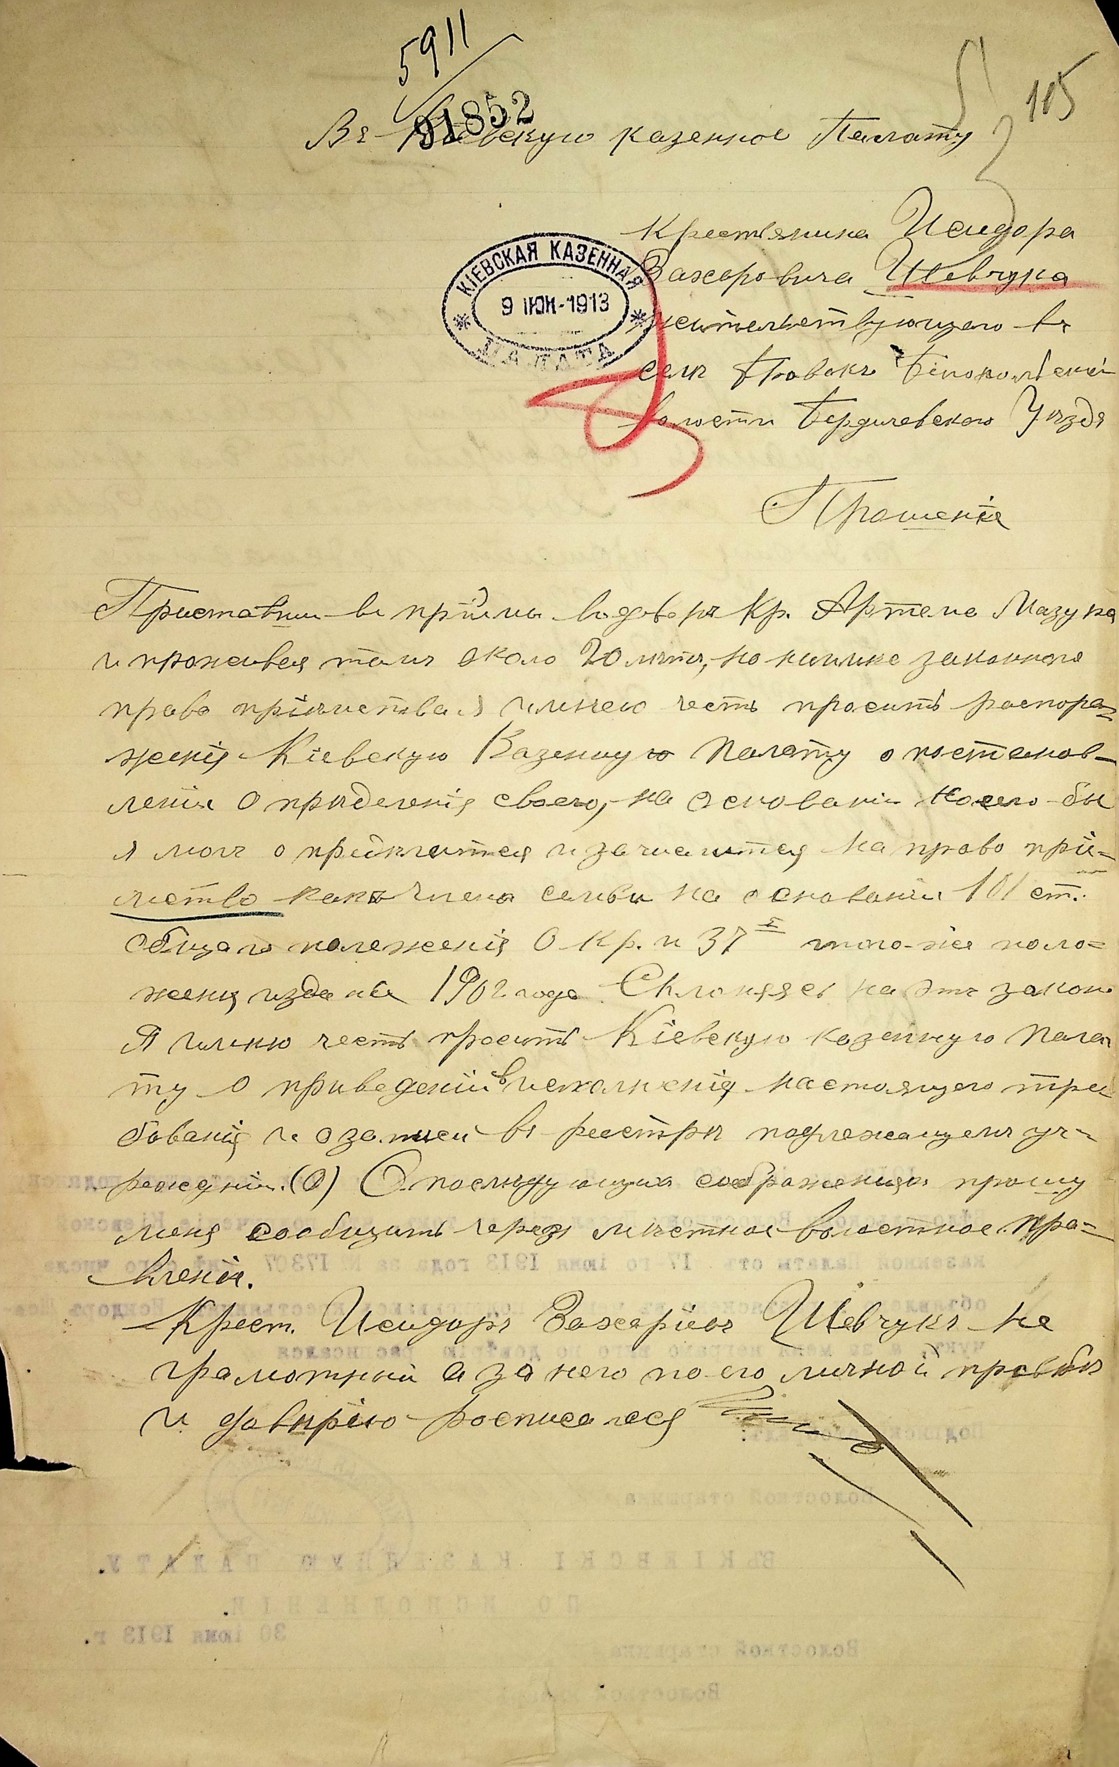 5911
91852
115
Въ Кіевскую казенное Палату
Крестьянина Исидора
Захаровича Шевчука
жительствующего въ
селѣ Бровкѣ Бѣлопольской
волости Бердичевского Уѣзда
КІЕВСКАЯ КАЗЕННАЯ
9 ІЮН-1913
ПАЛАТА
Прошеніе
Приставши въ приймы во дворъ Кр. Артема Мазура
и проживая тамъ около 20 лѣтъ, но не имѣя законного
право пріимства я имѣю честь просить распоря-
женія Кіевскую Казенную Палату о постанов-
ленія о придѣленія своего, на основаніи коего бы
я могъ о приклится и зачислится на право прій-
мство какъ члена семьи на основаніи 101 ст.
общаго положенія О кр. и 37 того-же поло-
женія изданія 1902 года. Склоняясь на этъ законъ
Я имѣю честь просить Кіевскую казенную Пала
ту о приведеніи въ исполненія настоящего тре
бованія и о записи въ реестръ подлежащемъ уч-
режденіи. (О) О послѣдующихъ соображеніяхъ прошу
меня сообщить черезъ мѣстное волостное пра-
вленіе.
Крест. Исидоръ Захаріевъ Шевчукъ не
грамотный а за него по его личной просьбѣ
и довѣрію росписался